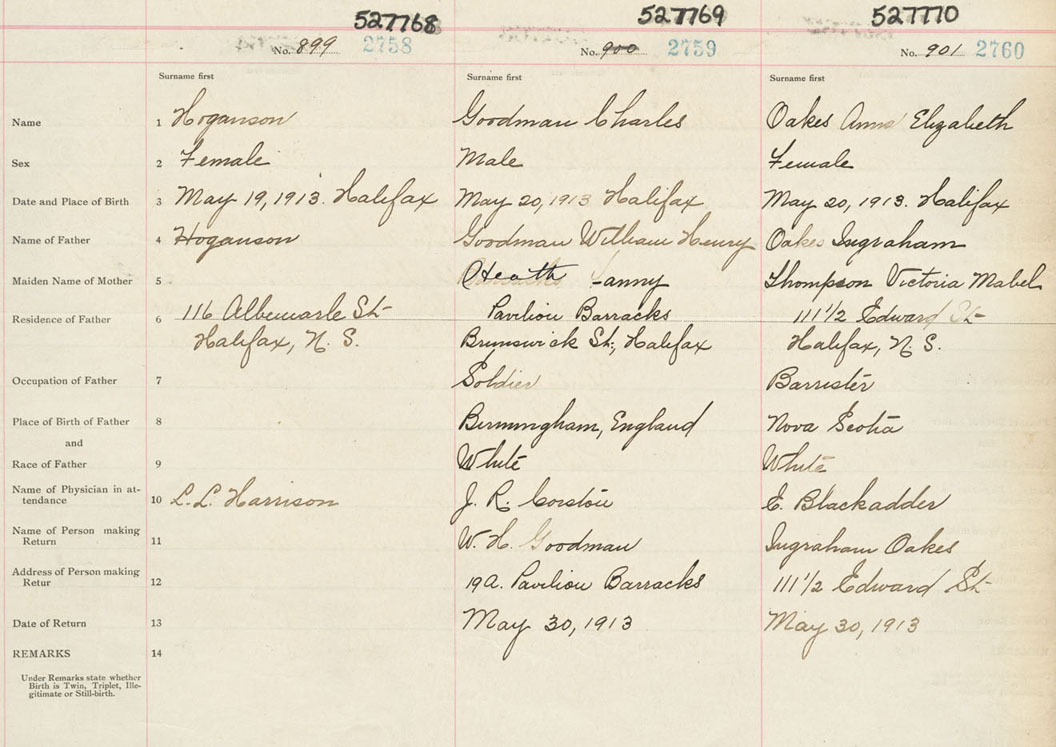 527768 527769 527770
No. 899 2758 No. 900 2759 No. 901 2760
Surname first Surname first Surname first
Name 1 Hoganson Goodman Charles Oakes Anna Elizabeth
Sex 2 Female Male Female
Date and Place of Birth 3 May 19, 1913. Halifax May 20, 1913 Halifax May 20, 1913. Halifax
Name of Father 4 Hoganson Goodman William Henry Oakes Ingraham
Maiden Name of Mother 5 Heath Fanny Thompson Victoria Mabel
Residence of Father 6 116 Albemarle St Pavilion Barracks 111 1/2 Edward St
Halifax, N. S. Brunswick St; Halifax Halifax, N S.
Occupation of Father 7 Soldier Barrister
Place of Birth of Father 8 Birmingham, England Nova Scotia
and
Race of Father 9 White White
Name of Physician in at-
tendance 10 L. L. Harrison J. R. Corston E. Blackadder
Name of Person making
Return 11 W. H. Goodman Ingraham Oakes
Address of Person making
Retur 12 19A. Pavilion Barracks 111 1/2 Edward St
Date of Return 13 May 30, 1913 May 30, 1913
REMARKS 14
Under Remarks state whether
Birth is Twin, Triplet, Ille-
gitimate or Still-birth.